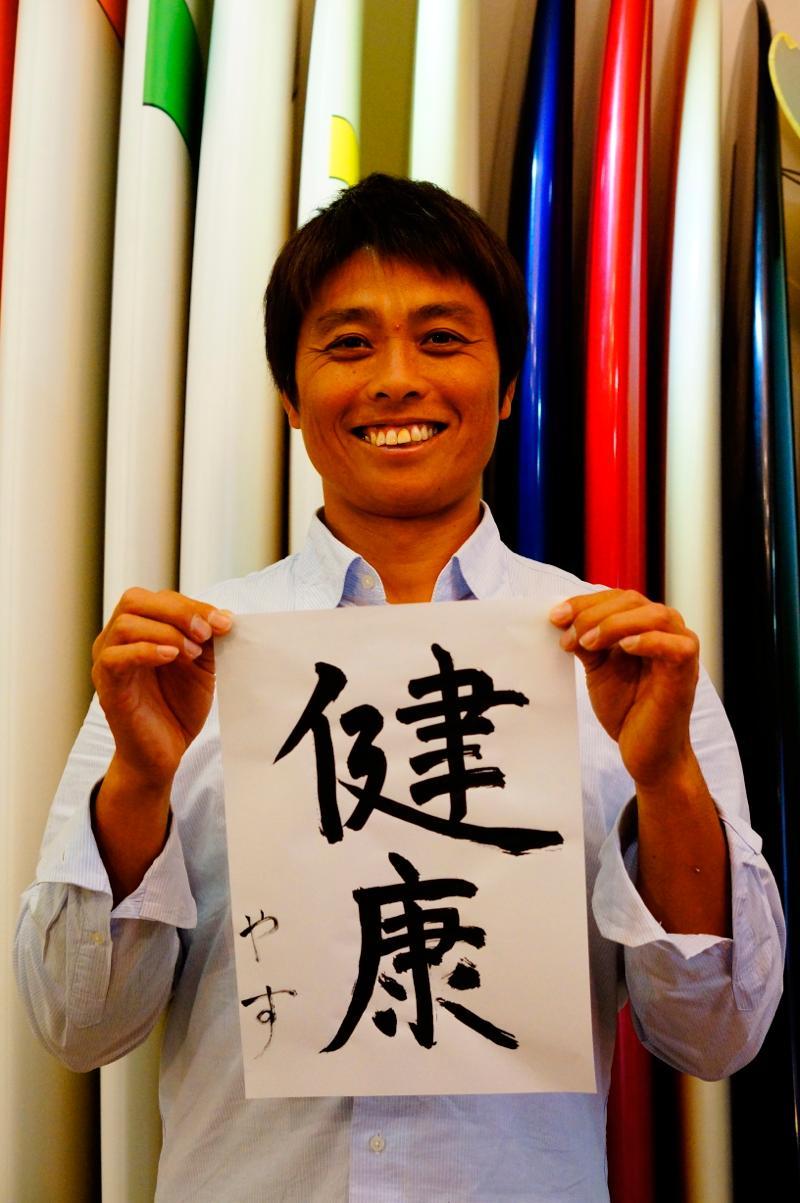 健康
やす